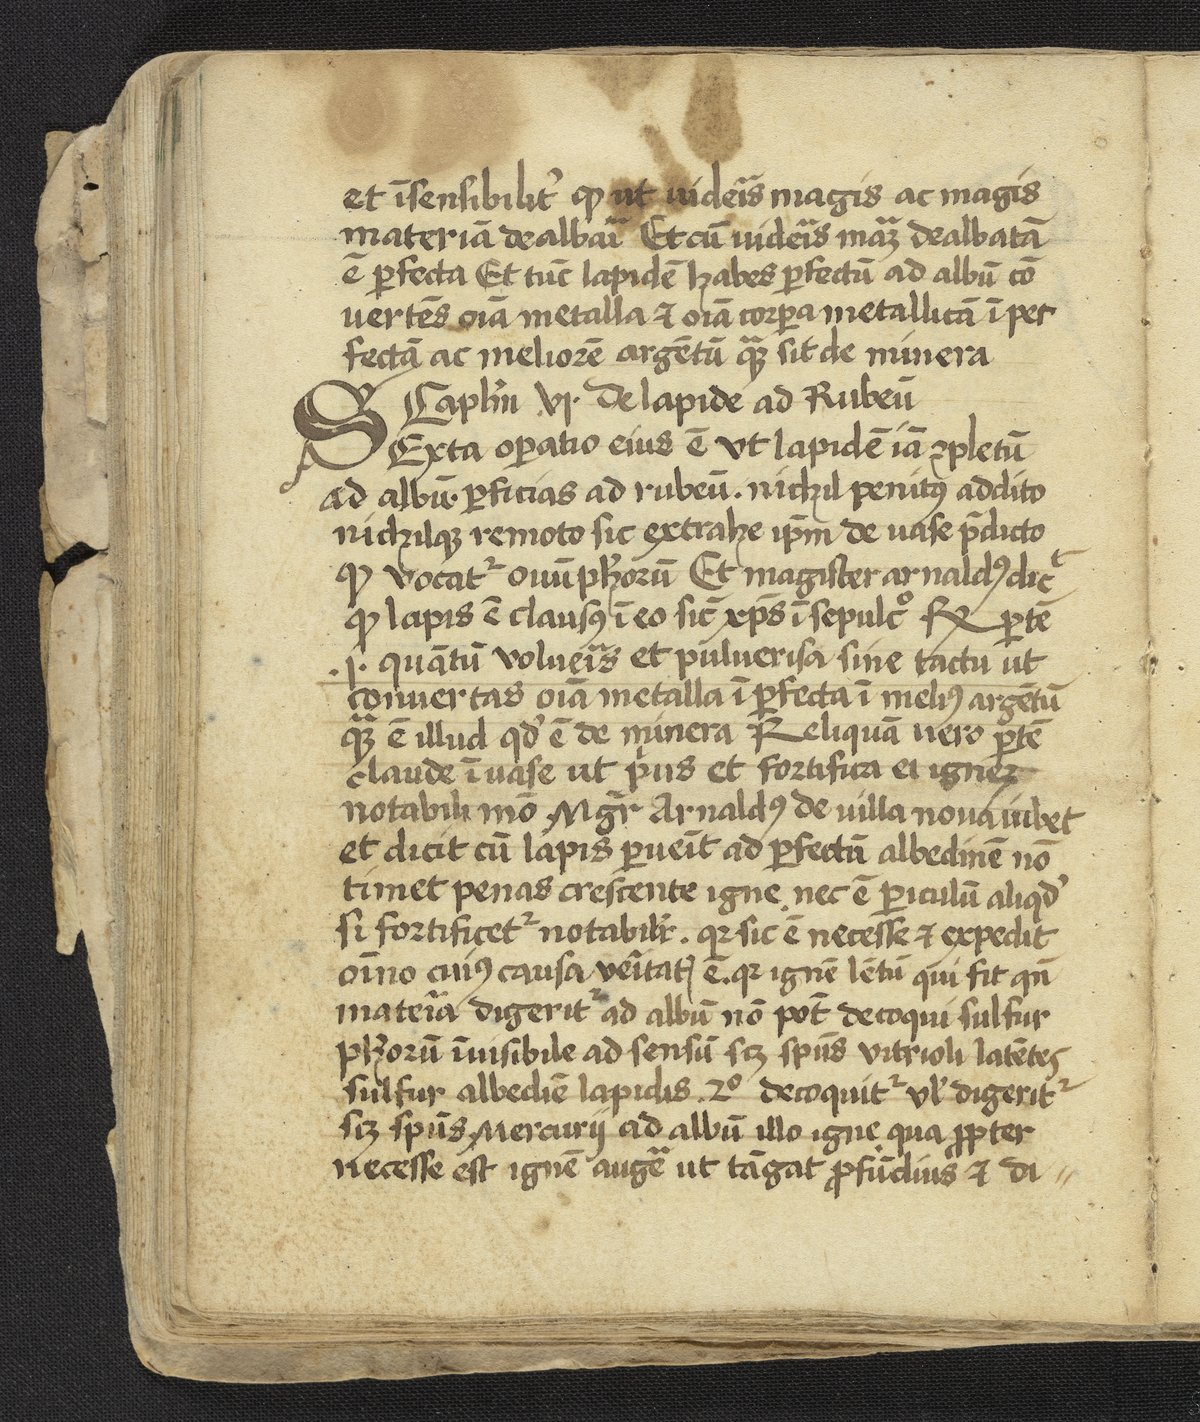 et īsensibilit̕ ꝙ ut uideās magis ac magis
materiā dealbaī Et cū uideās maꝫ dealbatā
ē ꝑfecta Et tūc lapidē habes ꝑfectū ad albū cō
uertēs oīa metalla ⁊ oīa corꝑa metallicā īper
fectā ac meliorē argētū quaꝫ sit de minera
Caplm̄ vj. De lapide ad Rubeū
SExta oꝑatio eius ē vt lapidē iā ꝯpletū
ad albū ꝑficias ad rubeū. nichil penitꝰ addito
nichilqꝫ remoto sic extrahe ip̄m de uase p̄dicto
ꝙ vocatᷣ ouū pħorū Et magister arnaldꝰ dic̄
ꝙ lapis ē clausꝰ ī eo sic̄ xp̄s ī sepulcᵒ ℞ ꝑtē
.j. quātū volueīs et puluerisa sine tactu ut
conuertas oīa metalla īꝑfecta ī meliꝰ argētū
quaꝫ ē illud qd̕ ē de minera Reliquā uero ꝑtē
claude ī uase ut pius et fortifica ei ignēꝫ
notabili mō Mgr̄ Arnaldꝰ de uilla noua iubet
et dicit cū lapis ꝑueīt ad ꝑfectā albedinē nō
timet penas crescente igne nec ē ꝑiculū aliqd̕
si fortificetᷣ notabilr̄. qꝛ sic ē necesse ⁊ expedit
oīno cuiꝰ causa veītatꝭ ē. qꝛ ignē lētū qui fit qn̄
mateīa digeritᷣ ad albū nō pōt decoqui sulfur
pħorū īuisibile ad sensū scꝫ spūs vitrioli latētes
sulfur albediē lapidis. 2º decoquitᷣ vl̕ digeritᷣ
scꝫ spūs Mercurij ad albū illo igne qua ꝓpter
necesse est ignē augēa ut tāgat ꝓfūdius ⁊ di〃